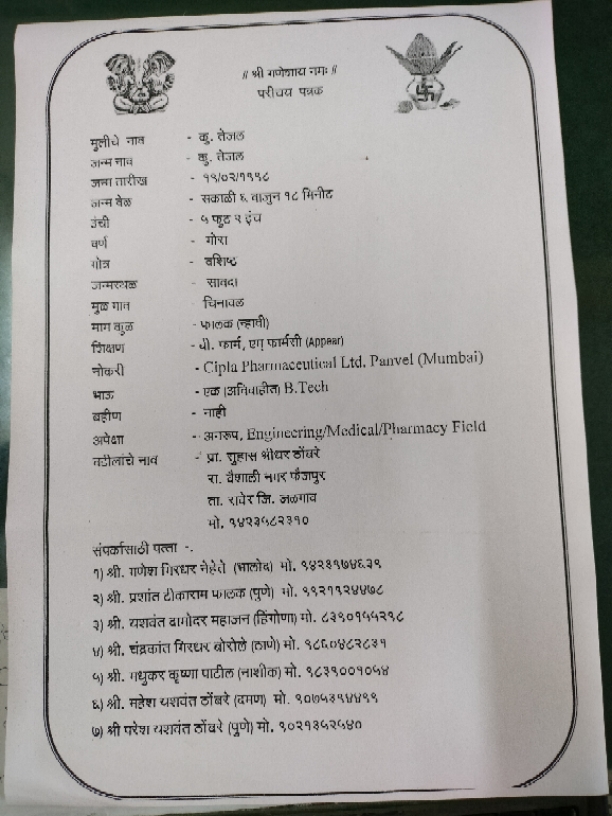 ॥ श्री गणेशाय नमः ॥
परीचय पत्रक
मुलीचे नाव - कु. तेजल
जन्म नाव - कु. तेजल
जन्म तारीख - १९/०२/१९९८
जन्म वेळ - सकाळी ६ वाजुन १८ मिनीट
उंची - ५ फुट २ इंच
वर्ण - गोरा
गोत्र - वशिष्ट
जन्मस्थळ - सावदा
मुळ गाव - चिनावल
मामकुळ - फालक (न्हावी)
शिक्षण - बी. फार्म, एम् फार्मसी (Appear)
नोकरी - Cipla Pharmaceutical Ltd. Panvel (Mumbai)
भाऊ - एक (अविवाहीत) B.Tech
बहीण - नाही
अपेक्षा - अनरूप, Engineering/Medical/Pharmacy Field
वडीलांचे नाव - प्रा. सुहास श्रीधर ठोंबरे
रा. वैशाली नगर फैजपूर
ता. रावेर जि. जळगाव
मो. ९४२३५८२३१०
संपर्कासाठी पत्ता -.
१) श्री. गणेश गिरधर नेहेते (भालोद) मो. ९४२११७४६३९
२) श्री. प्रशांत टीकाराम फालक (पुणे) मो. ९९२१९२४४७८
३) श्री. यशवंत दामोदर महाजन (हिंगोणा) मो. ८३९०१५५२९८
४) श्री. चंद्रकांत गिरधर बोरोले (ठाणे) मो. ९८६०४८२८३१
५) श्री. मधुकर कृष्णा पाटील (नाशीक) मो. ९८३९००१०५४
६) श्री. महेश यशवंत ठोंबरे (दमण) मो. ९०७५३९४४९९
७) श्री परेश यशवंत ठोंबरे (पुणे) मो. ९०२१३५२५४०